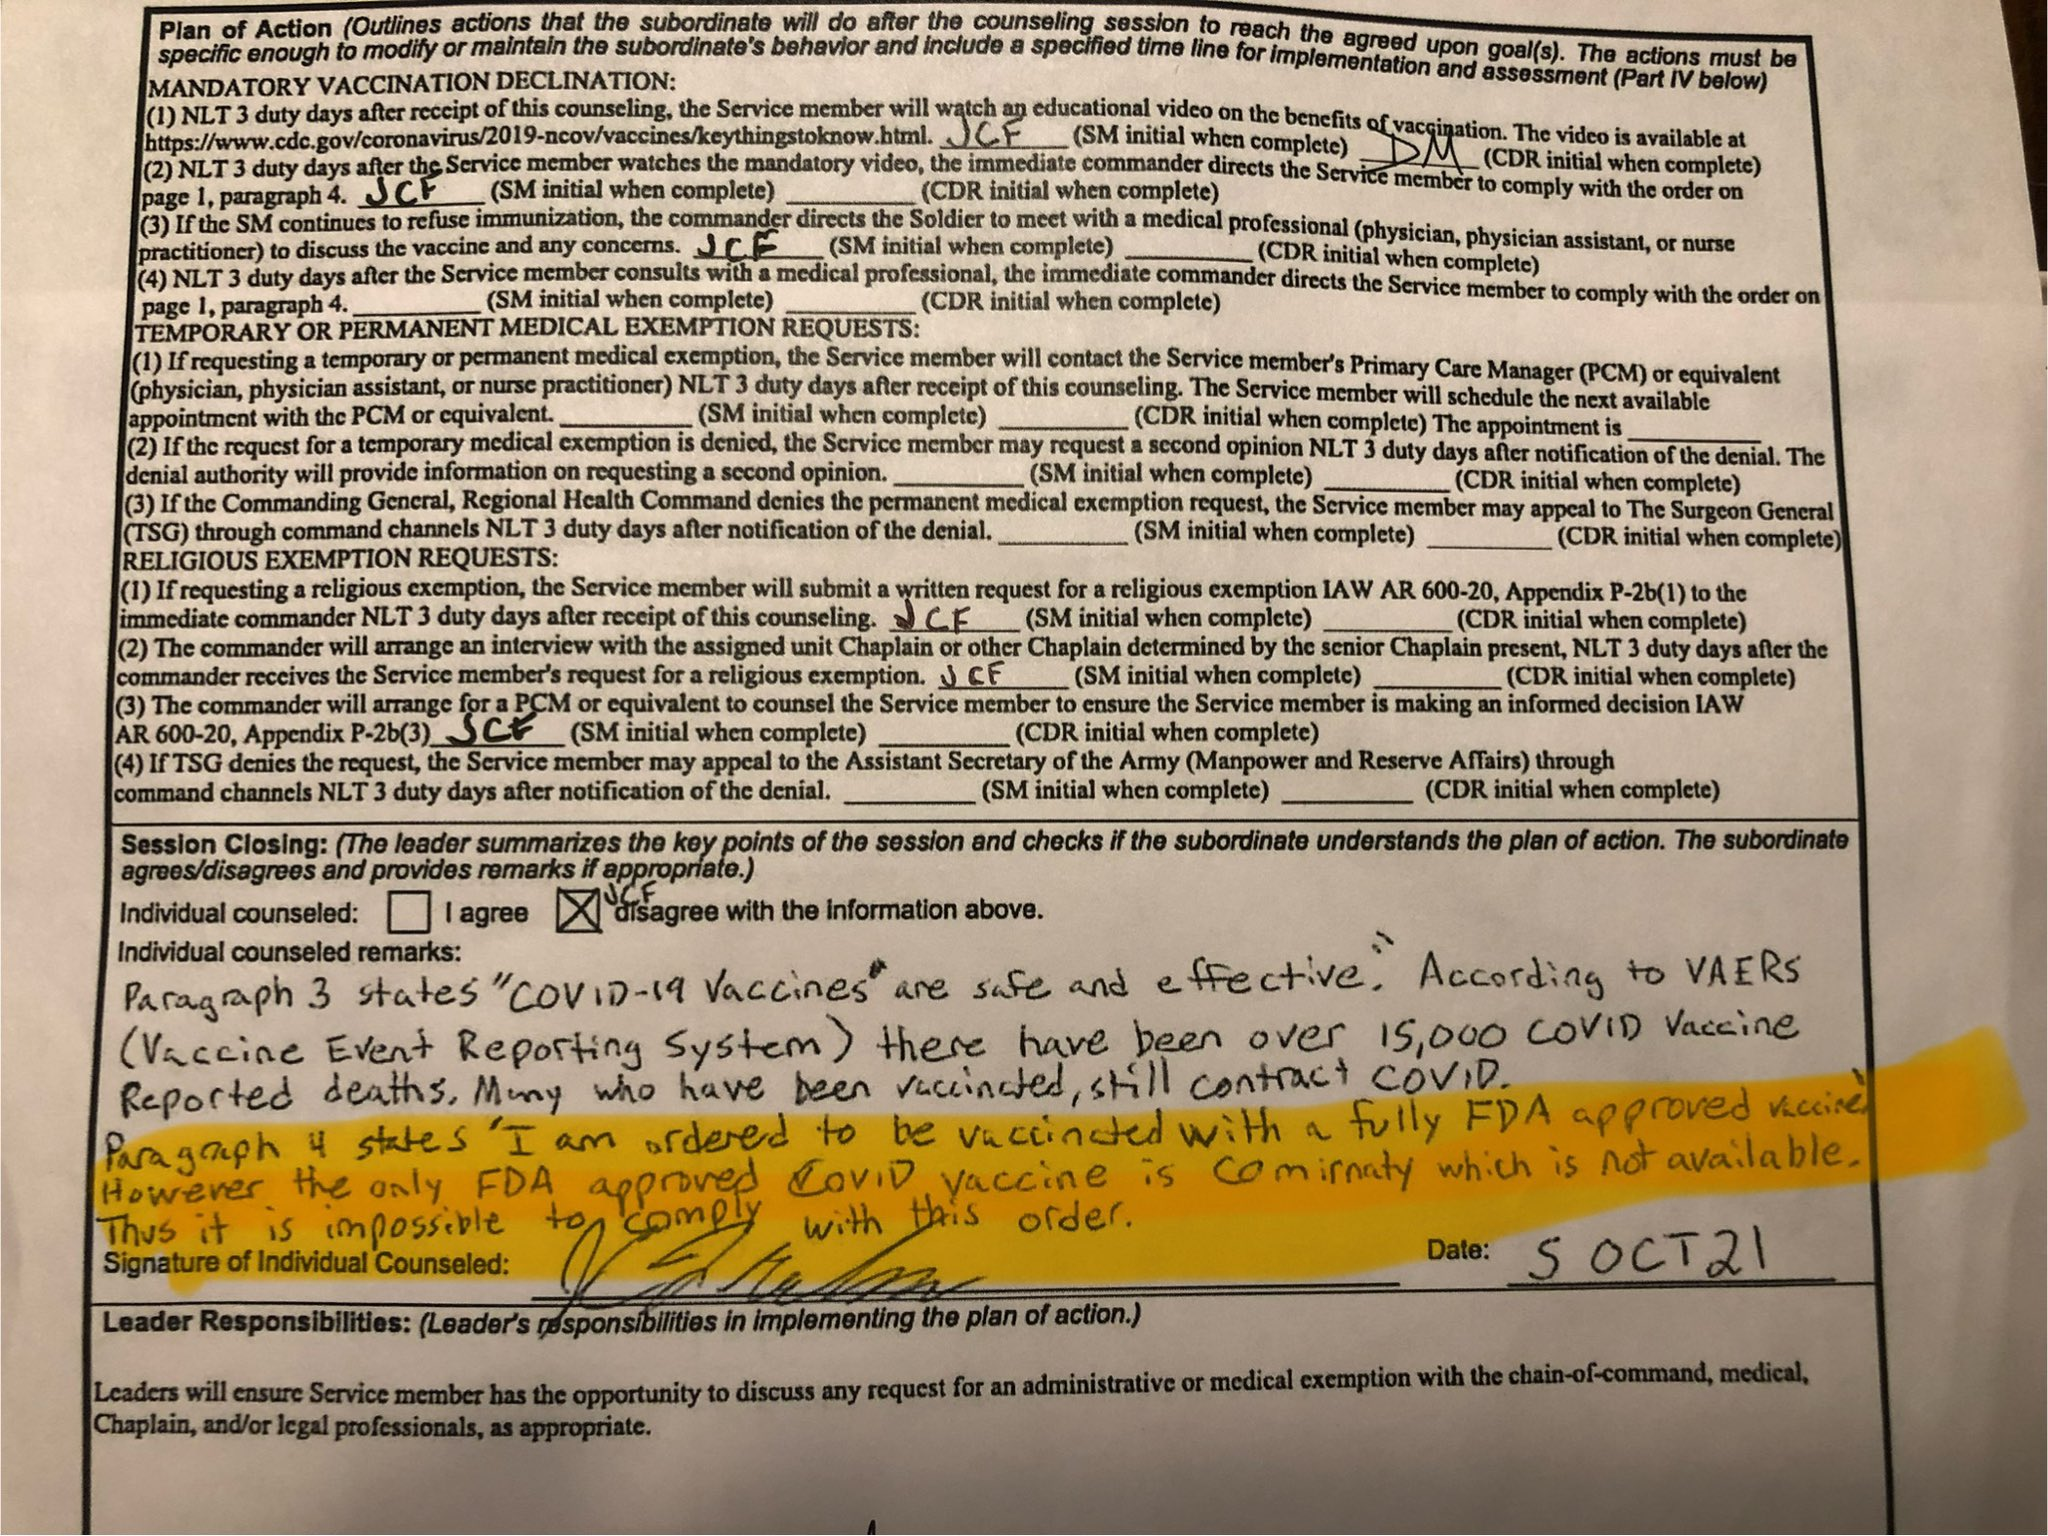 Plan of Action (Outlines actions that the subordinate will do after the counseling session to reach the agreed upon goal(s). The actions must be
specific enough to modify or maintain the subordinate's behavior and include a specified time line for implementation and assessment (Part IV below)
MANDATORY VACCINATION DECLINATION:
(1) NLT 3 duty days after receipt of this counseling, the Service member will watch an educational video on the benefits of vaccination. The video is available at
https://www.cdc.gov/coronavirus/2019-ncov/vaccines/keythingstoknow.html. JCF (SM initial when complete) DM (CDR initial when complete)
(2) NLT 3 duty days after the Service member watches the mandatory video, the immediate commander directs the Service member to comply with the order on
page 1, paragraph 4. JCF (SM initial when complete) ________ (CDR initial when complete)
(3) If the SM continues to refuse immunization, the commander directs the Soldier to meet with a medical professional (physician, physician assistant, or nurse
practitioner) to discuss the vaccine and any concerns. JCF (SM initial when complete) ________ (CDR initial when complete)
(4) NLT 3 duty days after the Service member consults with a medical professional, the immediate commander directs the Service member to comply with the order on
page 1, paragraph 4. ________ (SM initial when complete) ________ (CDR initial when complete)
TEMPORARY OR PERMANENT MEDICAL EXEMPTION REQUESTS:
(1) If requesting a temporary or permanent medical exemption, the Service member will contact the Service member's Primary Care Manager (PCM) or equivalent
(physician, physician assistant, or nurse practitioner) NLT 3 duty days after receipt of this counseling. The Service member will schedule the next available
appointment with the PCM or equivalent. ________ (SM initial when complete) ________ (CDR initial when complete) The appointment is ________
(2) If the request for a temporary medical exemption is denied, the Service member may request a second opinion NLT 3 duty days after notification of the denial. The
denial authority will provide information on requesting a second opinion. ________ (SM initial when complete) ________ (CDR initial when complete)
(3) If the Commanding General, Regional Health Command denies the permanent medical exemption request, the Service member may appeal to The Surgeon General
(TSG) through command channels NLT 3 duty days after notification of the denial. ________ (SM initial when complete) ________ (CDR initial when complete)
RELIGIOUS EXEMPTION REQUESTS:
(1) If requesting a religious exemption, the Service member will submit a written request for a religious exemption IAW AR 600-20, Appendix P-2b(1) to the
immediate commander NLT 3 duty days after receipt of this counseling. JCF (SM initial when complete) ________ (CDR initial when complete)
(2) The commander will arrange an interview with the assigned unit Chaplain or other Chaplain determined by the senior Chaplain present, NLT 3 duty days after the
commander receives the Service member's request for a religious exemption. JCF (SM initial when complete) ________ (CDR initial when complete)
(3) The commander will arrange for a PCM or equivalent to counsel the Service member to ensure the Service member is making an informed decision IAW
AR 600-20, Appendix P-2b(3) JCF (SM initial when complete) ________ (CDR initial when complete)
(4) If TSG denies the request, the Service member may appeal to the Assistant Secretary of the Army (Manpower and Reserve Affairs) through
command channels NLT 3 duty days after notification of the denial. ________ (SM initial when complete) ________ (CDR initial when complete)
Session Closing: (The leader summarizes the key points of the session and checks if the subordinate understands the plan of action. The subordinate
agrees/disagrees and provides remarks if appropriate.)
JCF
Individual counseled: I agree disagree with the information above.
Individual counseled remarks:
Paragraph 3 states "COVID-19 Vaccines" are safe and effective." According to VAERS
(Vaccine Event Reporting System) there have been over 15,000 COVID Vaccine
Reported deaths. Many who have been vaccinated, still contract COVID.
Paragraph 4 states "I am ordered to be vaccinated with a fully FDA approved vaccine"
However the only FDA approved COVID vaccine is Comirnaty which is not available.
Thus it is impossible to comply with this order.
Signature of Individual Counseled: Date: 5 OCT 21
Leader Responsibilities: (Leader's responsibilities in implementing the plan of action.)
Leaders will ensure Service member has the opportunity to discuss any request for an administrative or medical exemption with the chain-of-command, medical,
Chaplain, and/or legal professionals, as appropriate.